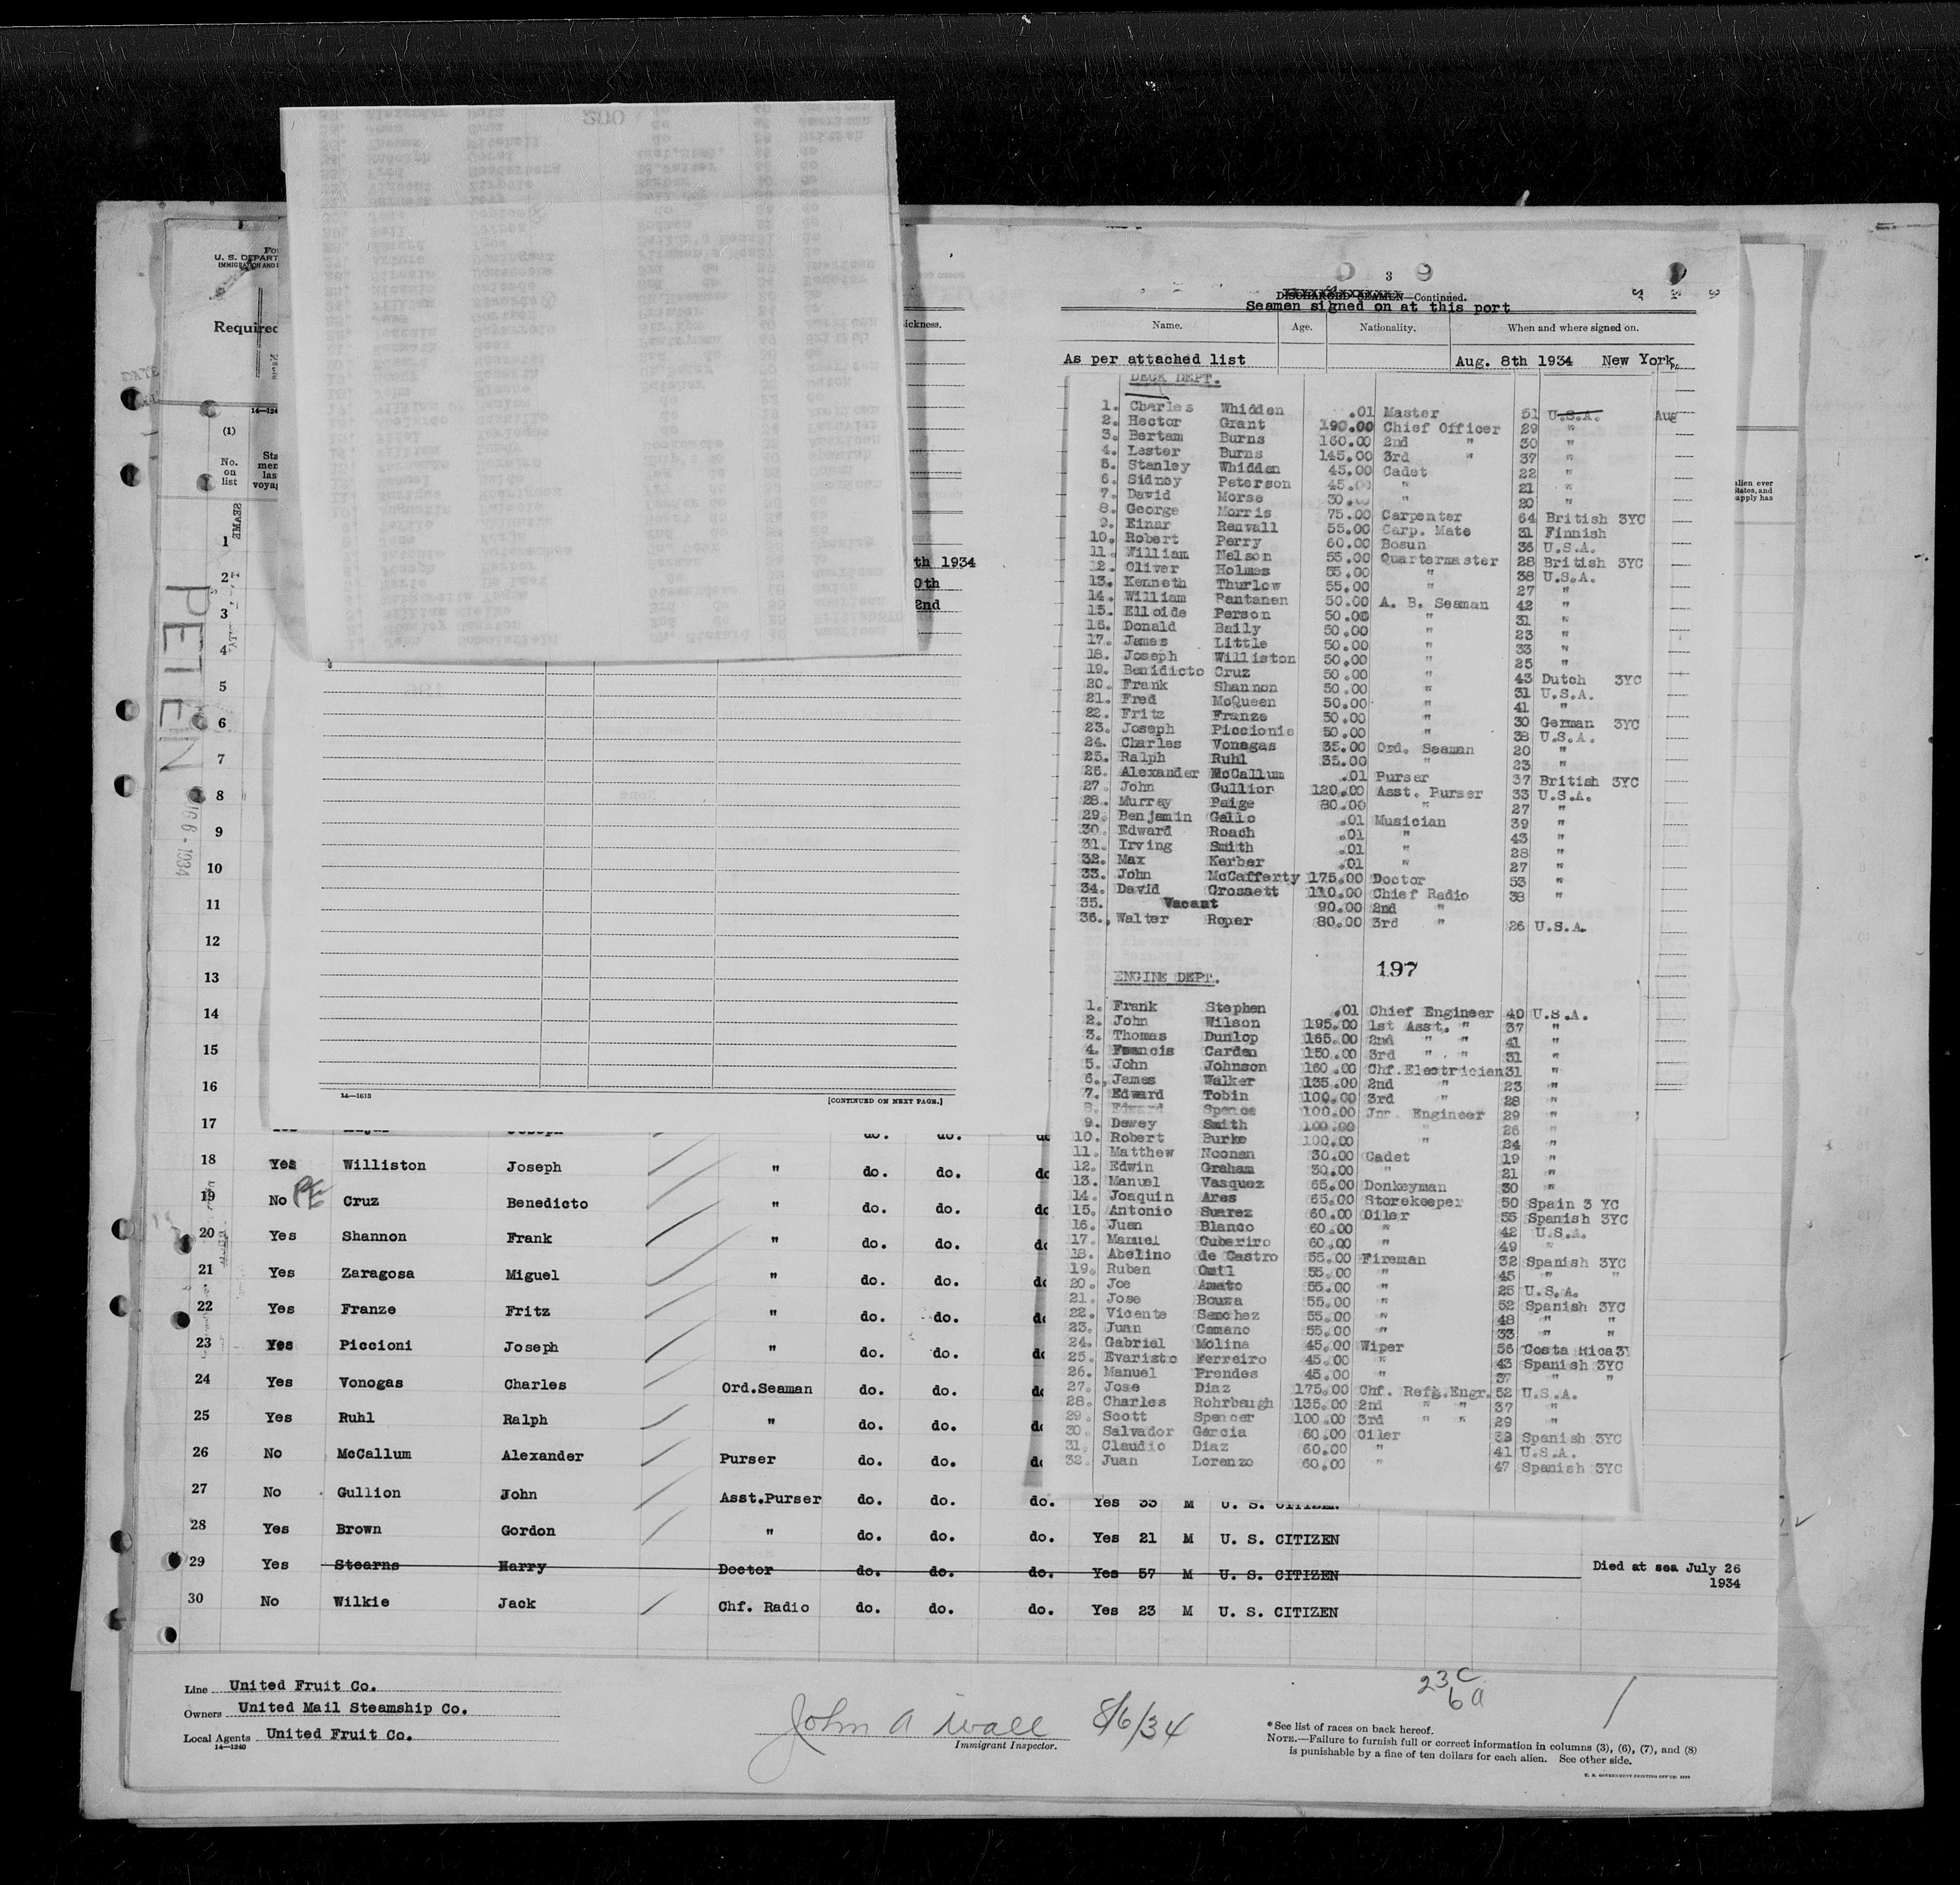 U. S. DEPART
Required
ickness.
(1)
No.
on
list
th 1934
0th
2nd
PETEN
3
DISCHARGED SEAMEN—Continued.
Seamen signed on at this port
Name. Age. Nationality. When and where signed on.
As per attached list Aug. 8th 1934 New York
DECK DEPT.
1. Charles Whidden .01 Master 51 U.S.A. Aug
2. Hector Grant 190.00 Chief Officer 29 "
3. Bertam Burns 160.00 2nd " 30 "
4. Lester Burns 145.00 3rd " 37 "
5. Stanley Whidden 45.00 Cadet 22 "
6. Sidney Peterson 45.00 " 21 "
7. David Morse 30.00 " 20 "
8. George Morris 75.00 Carpenter 64 British 3YC
9. Einar Renvall 55.00 Carp. Mate 31 Finnish
10. Robert Perry 60.00 Bosun 36 U.S.A.
11. William Nelson 55.00 Quartermaster 28 British 3YC
12. Oliver Holmes 55.00 " 38 U.S.A.
13. Kenneth Thurlow 55.00 " 27 "
14. William Pantanen 50.00 A. B. Seaman 42 "
15. Elloide Person 50.00 " 31 "
16. Donald Baily 50.00 " 23 "
17. James Little 50.00 " 33 "
18. Joseph Williston 50.00 " 25 "
19. Benidicto Cruz 50.00 " 43 Dutch 3YC
20. Frank Shannon 50.00 " 31 U.S.A.
21. Fred McQueen 50.00 " 41 "
22. Fritz Franze 50.00 " 30 German 3YC
23. Joseph Piccionie 50.00 " 38 U.S.A.
24. Charles Vonegas 35.00 Ord. Seaman 20 "
25. Ralph Ruhl 35.00 " 23 "
26. Alexander McCallum .01 Purser 37 British 3YC
27. John Gullior 120.00 Asst. Purser 33 U.S.A.
28. Murray Paige 80.00 " 27 "
29. Benjamin Gallo .01 Musician 39 "
30. Edward Roach .01 " 43 "
31. Irving Smith .01 " 28 "
32. Max Kerber .01 " 27 "
33. John McCafferty 175.00 Doctor 53 "
34. David Grossett 110.00 Chief Radio 38 "
35. Vacant 90.00 2nd "
36. Walter Roper 80.00 3rd " 26 U.S.A.
197
ENGINE DEPT.
1. Frank Stephen .01 Chief Engineer 40 U.S.A.
2. John Wilson 195.00 1st Asst. " 37 "
3. Thomas Dunlop 165.00 2nd " " 41 "
4. Francis Carden 150.00 3rd " " 31 "
5. John Johnson 160.00 Chf.Electrician 31 "
6. James Walker 135.00 2nd " 23 "
7. Edward Tobin 100.00 3rd " 28 "
8. Edward Spence 100.00 Jnr. Engineer 29 "
9. Dewey Smith 100.00 " 26 "
10. Robert Burke 100.00 " 24 "
11. Matthew Noonan 30.00 Cadet 19 "
12. Edwin Graham 30.00 " 21 "
13. Manuel Vasquez 65.00 Donkeyman 30 "
14. Joaquin Ares 65.00 Storekeeper 50 Spain 3 YC
15. Antonio Suarez 60.00 Oiler 55 Spanish 3YC
16. Juan Blanco 60.00 " 42 U.S.A.
17. Manuel Cubeiro 60.00 " 49 "
18. Abelino de Castro 55.00 Fireman 32 Spanish 3YC
19. Ruben Omil 55.00 " 45 " "
20. Joe Amato 55.00 " 25 U.S.A.
21. Jose Bouza 55.00 " 52 Spanish 3YC
22. Vicente Senchez 55.00 " 48 " "
23. Juan Camano 55.00 " 33 " "
24. Gabriel Molina 45.00 Wiper 56 Costa Rica3Y
25. Evaristo Ferreiro 45.00 " 43 Spanish 3YC
26. Manuel Prendes 45.00 " 37 " "
27. Jose Diaz 175.00 Chf. Refg.Engr. 52 U.S.A.
28. Charles Rohrbaugh 135.00 2nd " " 37 "
29. Scott Spencer 100.00 3rd " " 29 "
30. Salvador Garcia 60.00 Oiler 38 Spanish 3YC
31. Claudio Diaz 60.00 " 41 U.S.A.
32. Juan Lorenzo 60.00 " 47 Spanish 3YC
1
2
3
4
5
6
7
8
9
10
11
12
13
14
15
16
14—1613 [CONTINUED ON NEXT PAGE.]
17
18 Yes Williston Joseph " do. do.
19 No Cruz Benedicto " do. do.
20 Yes Shannon Frank " do. do.
21 Yes Zaragosa Miguel " do. do.
22 Yes Franze Fritz " do. do.
23 Yes Piccioni Joseph " do. do.
24 Yes Vonogas Charles Ord.Seaman do. do.
25 Yes Ruhl Ralph " do. do.
26 No McCallum Alexander Purser do. do.
27 No Gullion John Asst.Purser do. do. do. Yes 33 M U. S. CITIZEN
28 Yes Brown Gordon " do. do. do. Yes 21 M U. S. CITIZEN
29 Yes Stearns Harry Doctor do. do. do. Yes 57 M U. S. CITIZEN Died at sea July 26 1934
30 No Wilkie Jack Chf. Radio do. do. do. Yes 23 M U. S. CITIZEN
Line United Fruit Co.
Owners United Mail Steamship Co.
Local Agents United Fruit Co.
14—1240
John A Wall 8/6/34
Immigrant Inspector.
23 C
6 a
*See list of races on back hereof.
NOTE.—Failure to furnish full or correct information in columns (3), (6), (7), and (8)
is punishable by a fine of ten dollars for each alien. See other side.